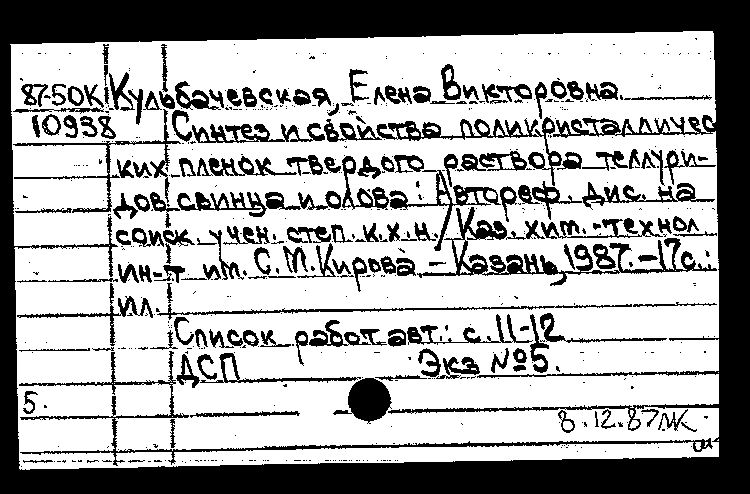 87-50К Кульбачевская, Елена Викторовна.
10938 Синтез и свойства поликристалличес
ких пленок твердого раствора теллури-
дов свинца и олова: Автореф. дис. на
соиск. учен. степ. к.х.н. / Каз. хим.-технол
ин-т им. С.М.Кирова – Казань, 1987.-17с.:
ил.
Список работ авт.: с. 11-12
ДСП Экз №5.
5.
8.12.87